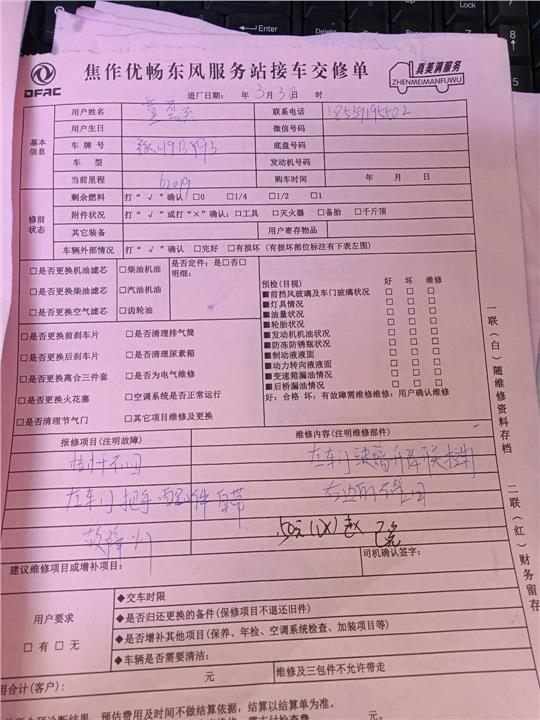 DFAC
焦作优畅东风服务站接车交修单
真美满服务
ZHENMEIMANFUWU
进厂日期: 年 3月 3日 时
基本信息
用户姓名 联系电话
用户生日 微信号码
车牌号 底盘号码
车型 发动机号码
当前里程 62019 购车时间 年 月 日
修前状态
剩余燃料 打“√”确认 □0 □1/4 □1/2 □1
附件状况 打“√”或打“×”确认: □工具 □灭火器 □备胎 □千斤顶
其它装备 用户寄存物品
车辆外部情况 打“√”确认 □完好 □有损坏 (有损坏部位标注有下表左图)
□是否更换机油滤芯 □柴油机油 是否定件: 是□否□
明细:
□是否更换柴油滤芯 □汽油机油
□是否更换空气滤芯 □齿轮油
预检(目视) 好 坏 维修
■前挡风玻璃及车门玻璃状况 □ □ □
■灯具情况 □ □ □
■油量状况 □ □ □
■轮胎状况 □ □ □
■发动机机油状况 □ □ □
■防冻防锈瓶状况 □ □ □
■制动液液面 □ □ □
■动力转向液液面 □ □ □
■变速箱漏油情况 □ □ □
■后桥漏油情况 □ □ □
好: 合格 坏: 有故障需维修维修: 用户确认维修
□是否更换前刹车片 □是否清理排气筒
□是否更换后刹车片 □是否清理尿素箱
□是否更换离合三件套 □是否为电气维修
□是否更换火花塞 □空调系统是否正常运行
□是否清理节气门 □其它项目维修及更换
报修项目(注明故障) 维修内容(注明维修部件)
左车门玻璃升降
左车门把手
故障灯
建议维修项目或增补项目: 司机确认签字:
用户要求
□有 □无
◆交车时限
◆是否归还更换的备件(保修项目不退还旧件)
◆是否增补其他项目(保养、年检、空调系统检查、加装项目等)
◆车辆是否需要清洁:
用合计(客户): 元 维修及三包件不允许带走
诊断结果、预估费用及时间不做结算依据, 结算以结算单为准。
一联(白)随维修资料存档
二联(红)财务留存